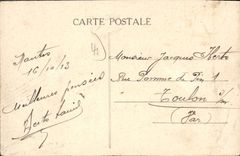 CARTE POSTALE
Nantes
16/10/13
meilleures pensées
Monsieur Jacques
Rue Pomme de Pin 1
Toulon s/m
(Var)